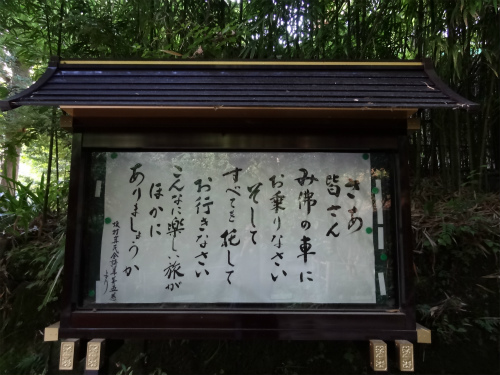 さあ
皆さん
み佛の車に
お乗りなさい
そして
すべてを托して
お行きなさい
こんなに楽しい旅が
ほかに
ありましょうか
坂村真民
より